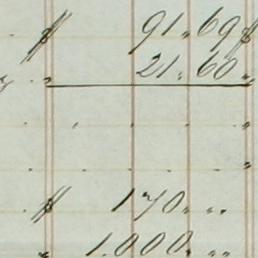 $ 91.69 $
21.60 "
" " "
"
$ 170 " "
" 1.000 " "